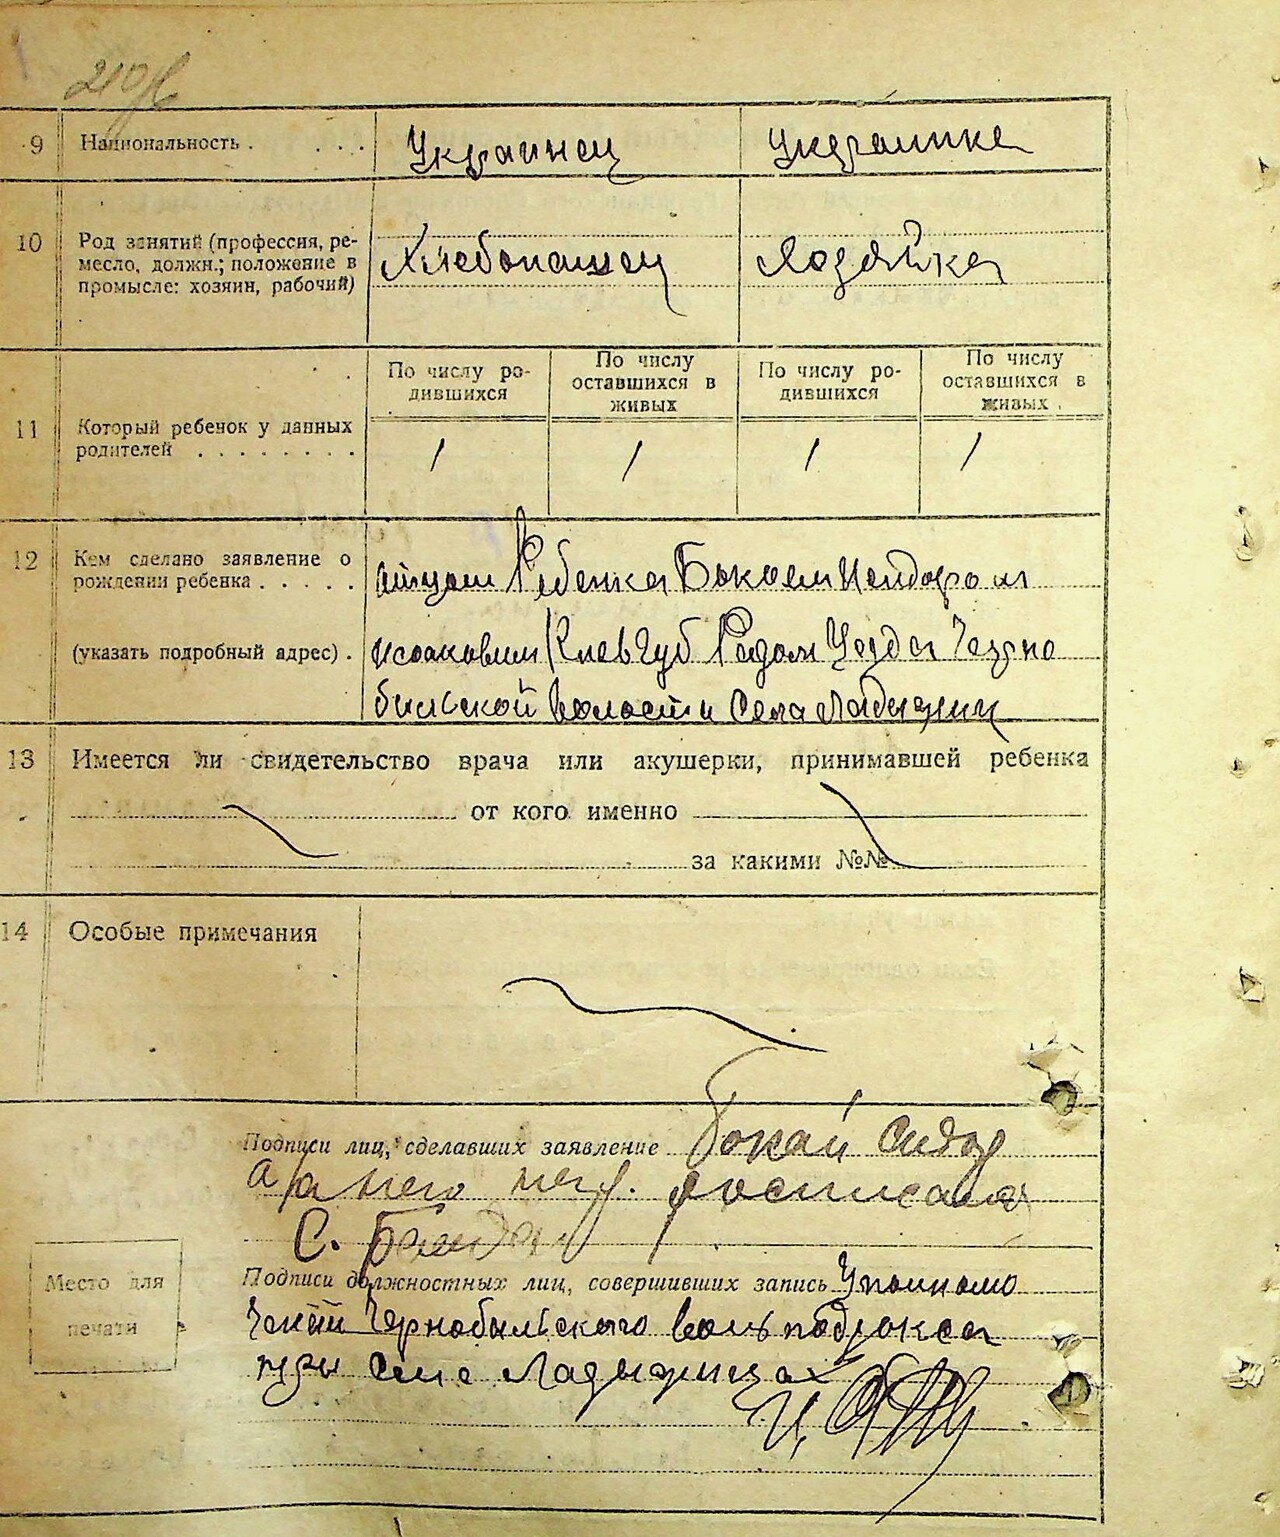 210
9 Национальность . . . . Украинец Украинка
10 Род занятий (профессия, ре-
месло, должн.; положение в
промысле: хозяин, рабочий) Хлебопашец Хозяйка
По числу ро-
дившихся
По числу
оставшихся в
живых
По числу ро-
дившихся
По числу
оставшихся в
живых
11 Который ребенок у данных
родителей . . . . . . . . 1 1 1 1
12 Кем сделано заявление о
рождении ребенка . . . . . отцом Ребенка Бокаем
(указать подробный адрес) . Киев Губ Радом Уезда Черно
бильской Волости Села
13 Имеется ли свидетельство врача или акушерки, принимавшей ребенка
от кого именно
за какими №№
14 Особые примечания
Подписи лиц, сделавших заявление Бокай Сидор
а за него негр. росписался
С.
Место для
печати
Подписи должностных лиц, совершивших запись Уполномо
ченый Чернобыльского подзакса
при селе Ладыжичах